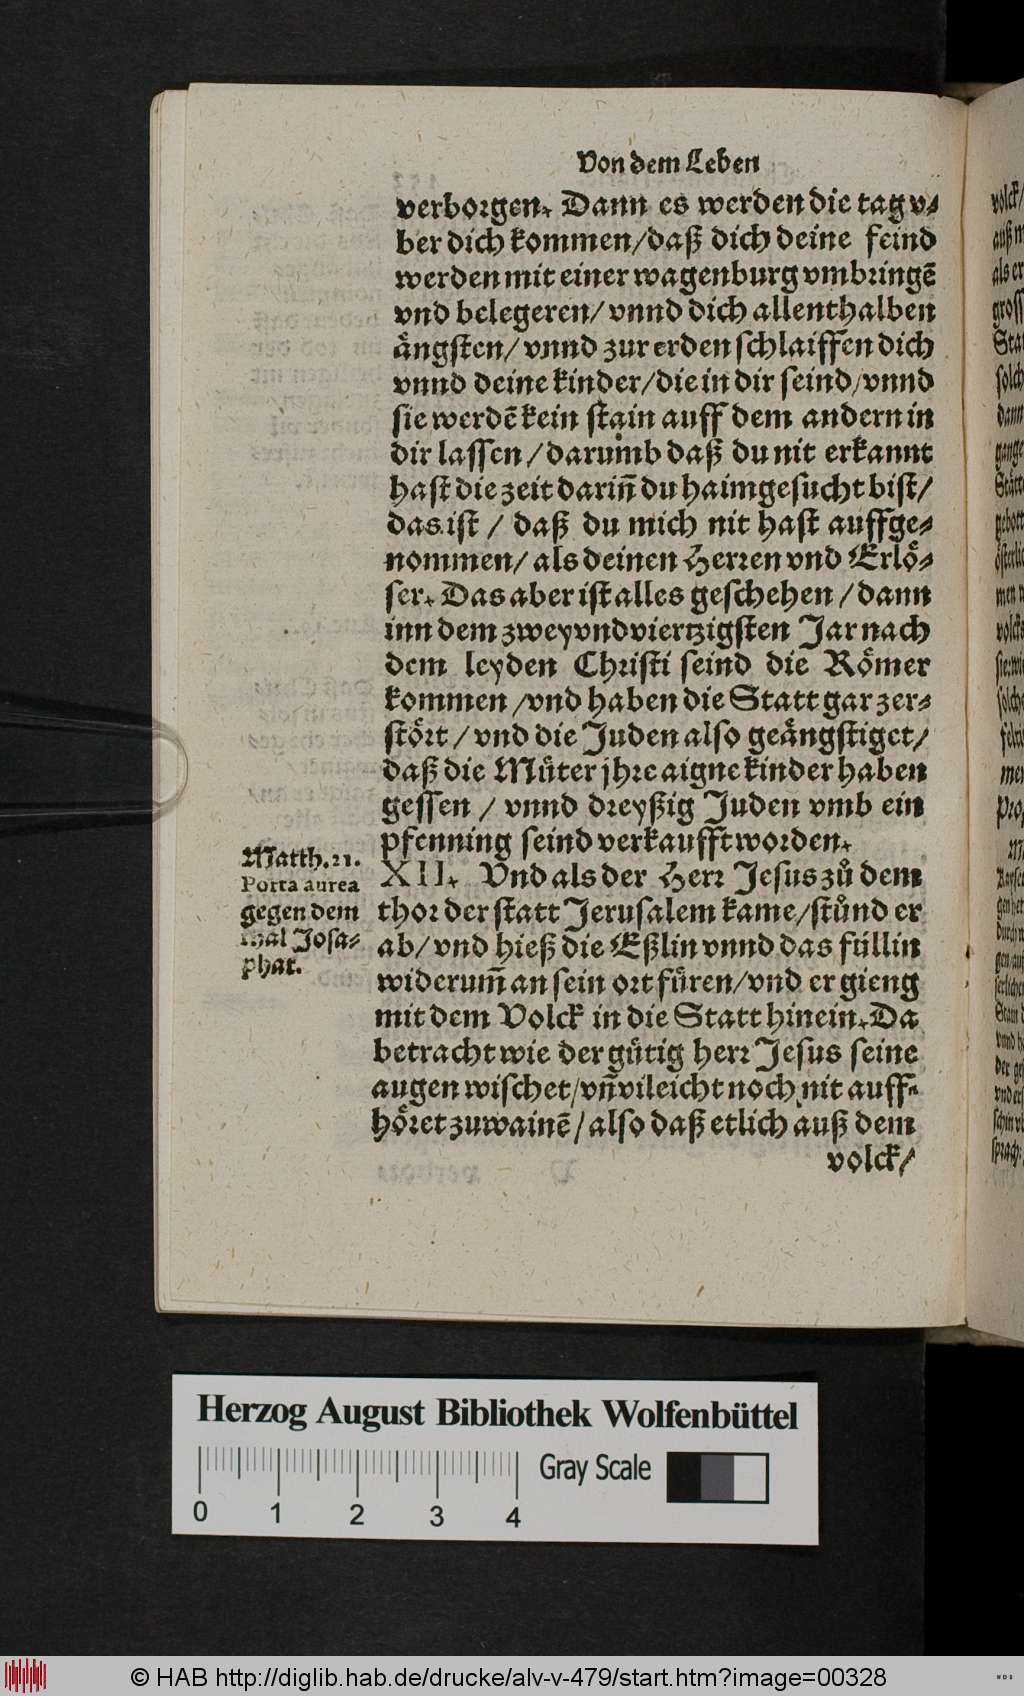 Von dem Leben
verborgen. Dann es werden die tag v-
ber dich kommen/daß dich deine feind
werden mit einer wagenburg vmbringē
vnd belegeren/ vnnd dich allenthalben
aͤngsten/ vnnd zur erden schlaiffen dich
vnnd deine kinder/die in dir seind/vnnd
sie werdē kein stain auff dem andern in
dir lassen/darumb daß du nit erkannt
hast die zeit darin̄ du haimgesucht bist/
das ist / daß du mich nit hast auffge-
nommen/ als deinen Herren vnd Erloͤ-
ser. Das aber ist alles geschehen /dann
inn dem zweyvndviertzigsten Jar nach
dem leyden Christi seind die Roͤmer
kommen /vnd haben die Statt gar zer-
stoͤrt / vnd die Juden also geaͤngstiget/
daß die Muͤter jhre aigne kinder haben
gessen / vnnd dreyßig Juden vmb ein
pfenning seind verkaufft worden.
Matth. 21.
Porta aurea
gegen dem
thal Josa-
phat.
XII. Vnd als der Herr Jesus zuͦ dem
thor der statt Jerusalem kame/stuͦnd er
ab/ vnd hieß die Eßlin vnnd das füllin
widerum̄ an sein ort fuͤren/vnd er gieng
mit dem Volck in die Statt hinein. Da
betracht wie der guͤtig herr Jesus seine
augen wischet/vn̄ vileicht noch nit auff-
hoͤret zuwainē/also daß etlich auß dem
volck/
volck/
als er
Herzog August Bibliothek Wolfenbüttel
0 1 2 3 4
Gray Scale
© HAB http://diglib.hab.de/drucke/alv-v-479/start.htm?image=00328